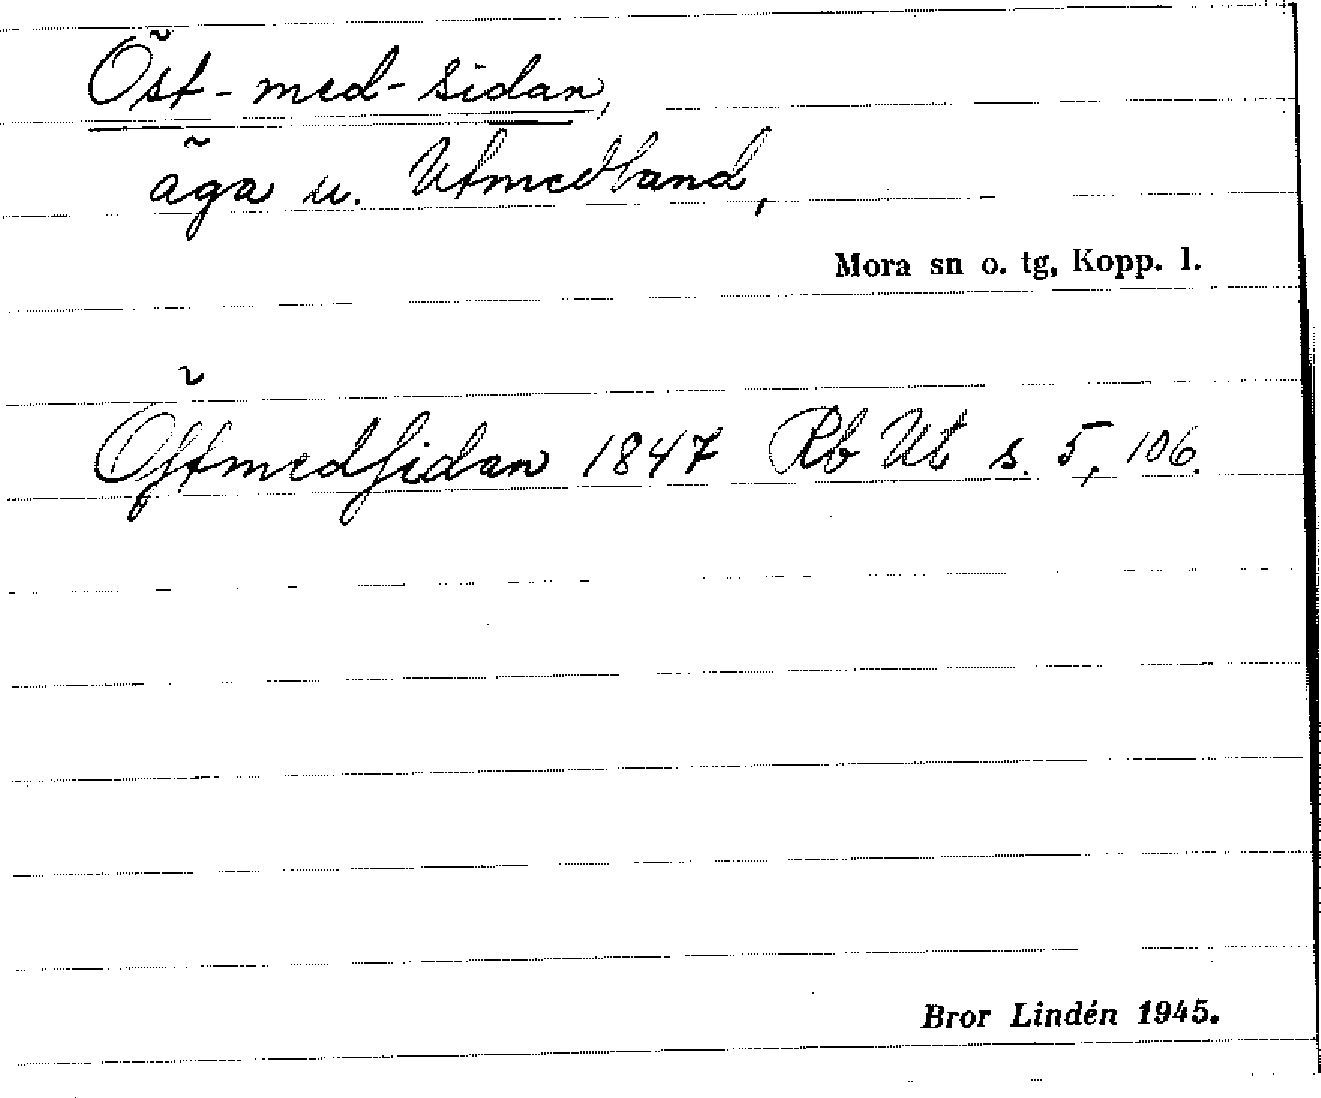 Öst-med-sidan,
äga u. Utmedland,
Mora sn o. tg, Kopp. l.
Öſtmedſidan 1847 Rb Ut s. 5, 106.
Bror Lindén 1945.